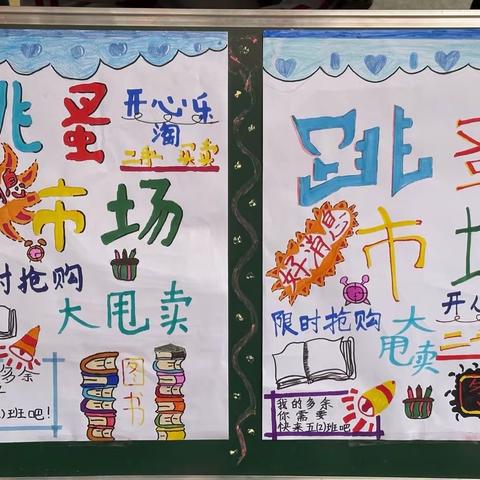 跳蚤
开心乐
淘
二手 买卖
息
市场
时抢购
大甩卖
多余
班吧!
图书
跳蚤
好消息
市场
限时抢购
大甩卖
开心
二手
我的多余
你需要
快来五(2)班吧